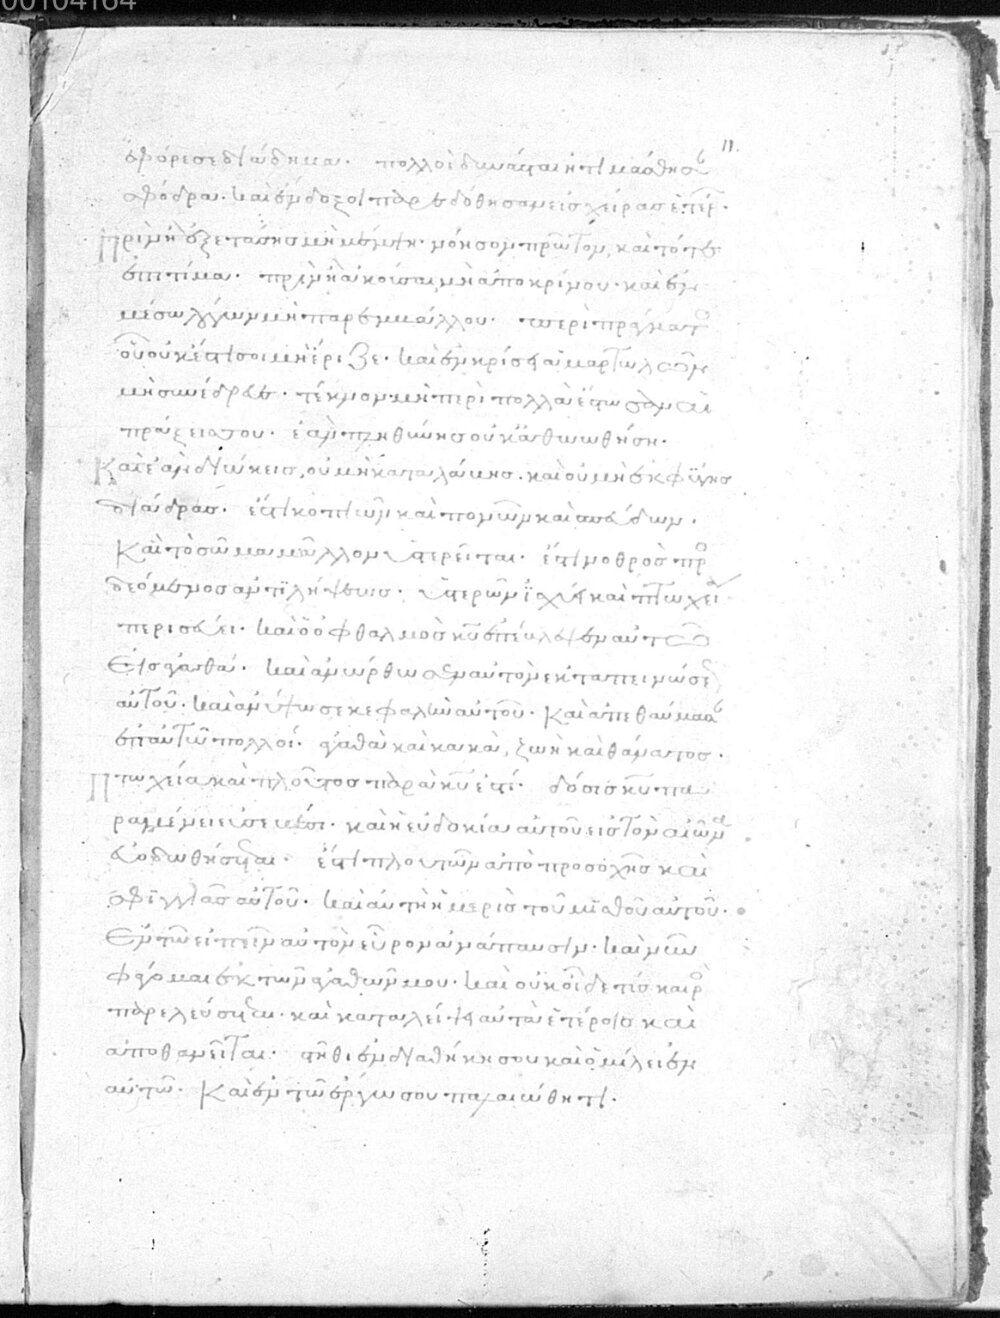 00104164
11.
ἐφόρεσε διάδημα. πολλοὶ δυνάσται ἠτιμάσθησαν
σφόδρα. καὶ ἔνδοξοι παρεδόθησαν εἰς χεῖρας ἑτέρ.
Πρὶν ἢ ἐξετάσῃς μὴ μέμψῃ. νόησον πρῶτον, καὶ τότε
ἐπιτίμα. πρὶν ἢ ἀκοῦσαι μὴ ἀποκρίνου. καὶ ἐν
μέσῳ λόγων μὴ παρεμβάλλου. περὶ πράγματος
οὗ οὐκ ἔστι σοι μὴ ἔριζε. καὶ ἐν κρίσει ἁμαρτωλῶν
μὴ συνέδρευε. τέκνον μὴ περὶ πολλὰ ἔστωσαν αἱ
πράξεις σου. ἐὰν πληθύνῃς οὐκ ἀθωωθήσῃ.
Καὶ ἐὰν διώκεις, οὐ μὴ καταλάβῃς. καὶ οὐ μὴ ἐκφύγῃς
διαδράς. ἔστι κοπιῶν καὶ πονῶν καὶ σπεύδων.
Καὶ τόσῳ μᾶλλον ὑστερεῖται. ἔστι νωθρὸς προσ
δεόμενος ἀντιλήψεως. ὑστερῶν ἰσχύι καὶ πτωχείᾳ
περισσεύει. καὶ ὁ ὀφθαλμὸς κυ ἐπέβλεψεν αὐτῷ
Εἰς ἀγαθά. καὶ ἀνώρθωσεν αὐτὸν ἐκ ταπεινώσεως
αὐτοῦ. καὶ ἀνύψωσε κεφαλὴν αὐτοῦ. Καὶ ἀπεθαύμασαν
ἐπ αὐτῷ πολλοί. ἀγαθὰ καὶ κακὰ, ζωὴ καὶ θάνατος.
Πτωχεία καὶ πλοῦτος παρὰ κυ ἐστί. δόσις κυ πα
ραμένει εὐσεβέσι. καὶ ἡ εὐδοκία αὐτοῦ εἰς τὸν αἰῶνα
εὐοδωθήσεται. ἔστι πλουτῶν ἀπὸ προσοχῆς καὶ
σφιγγίας αὐτοῦ. καὶ αὕτη ἡ μερὶς τοῦ μισθοῦ αὐτοῦ.
Ἐν τῷ εἰπεῖν αὐτὸν εὗρον ἀνάπαυσιν. καὶ νῦν
φάγομαι ἐκ τῶν ἀγαθῶν μου. καὶ οὐκ οἶδε τίς καιρὸς
παρελεύσεται. καὶ καταλείψει αὐτὰ ἑτέροις καὶ
ἀποθανεῖται. στῆθι ἐν διαθήκῃ σου καὶ ὁμίλει ἐν
αὐτῷ. Καὶ ἐν τῷ ἔργῳ σου παλαιώθητι.